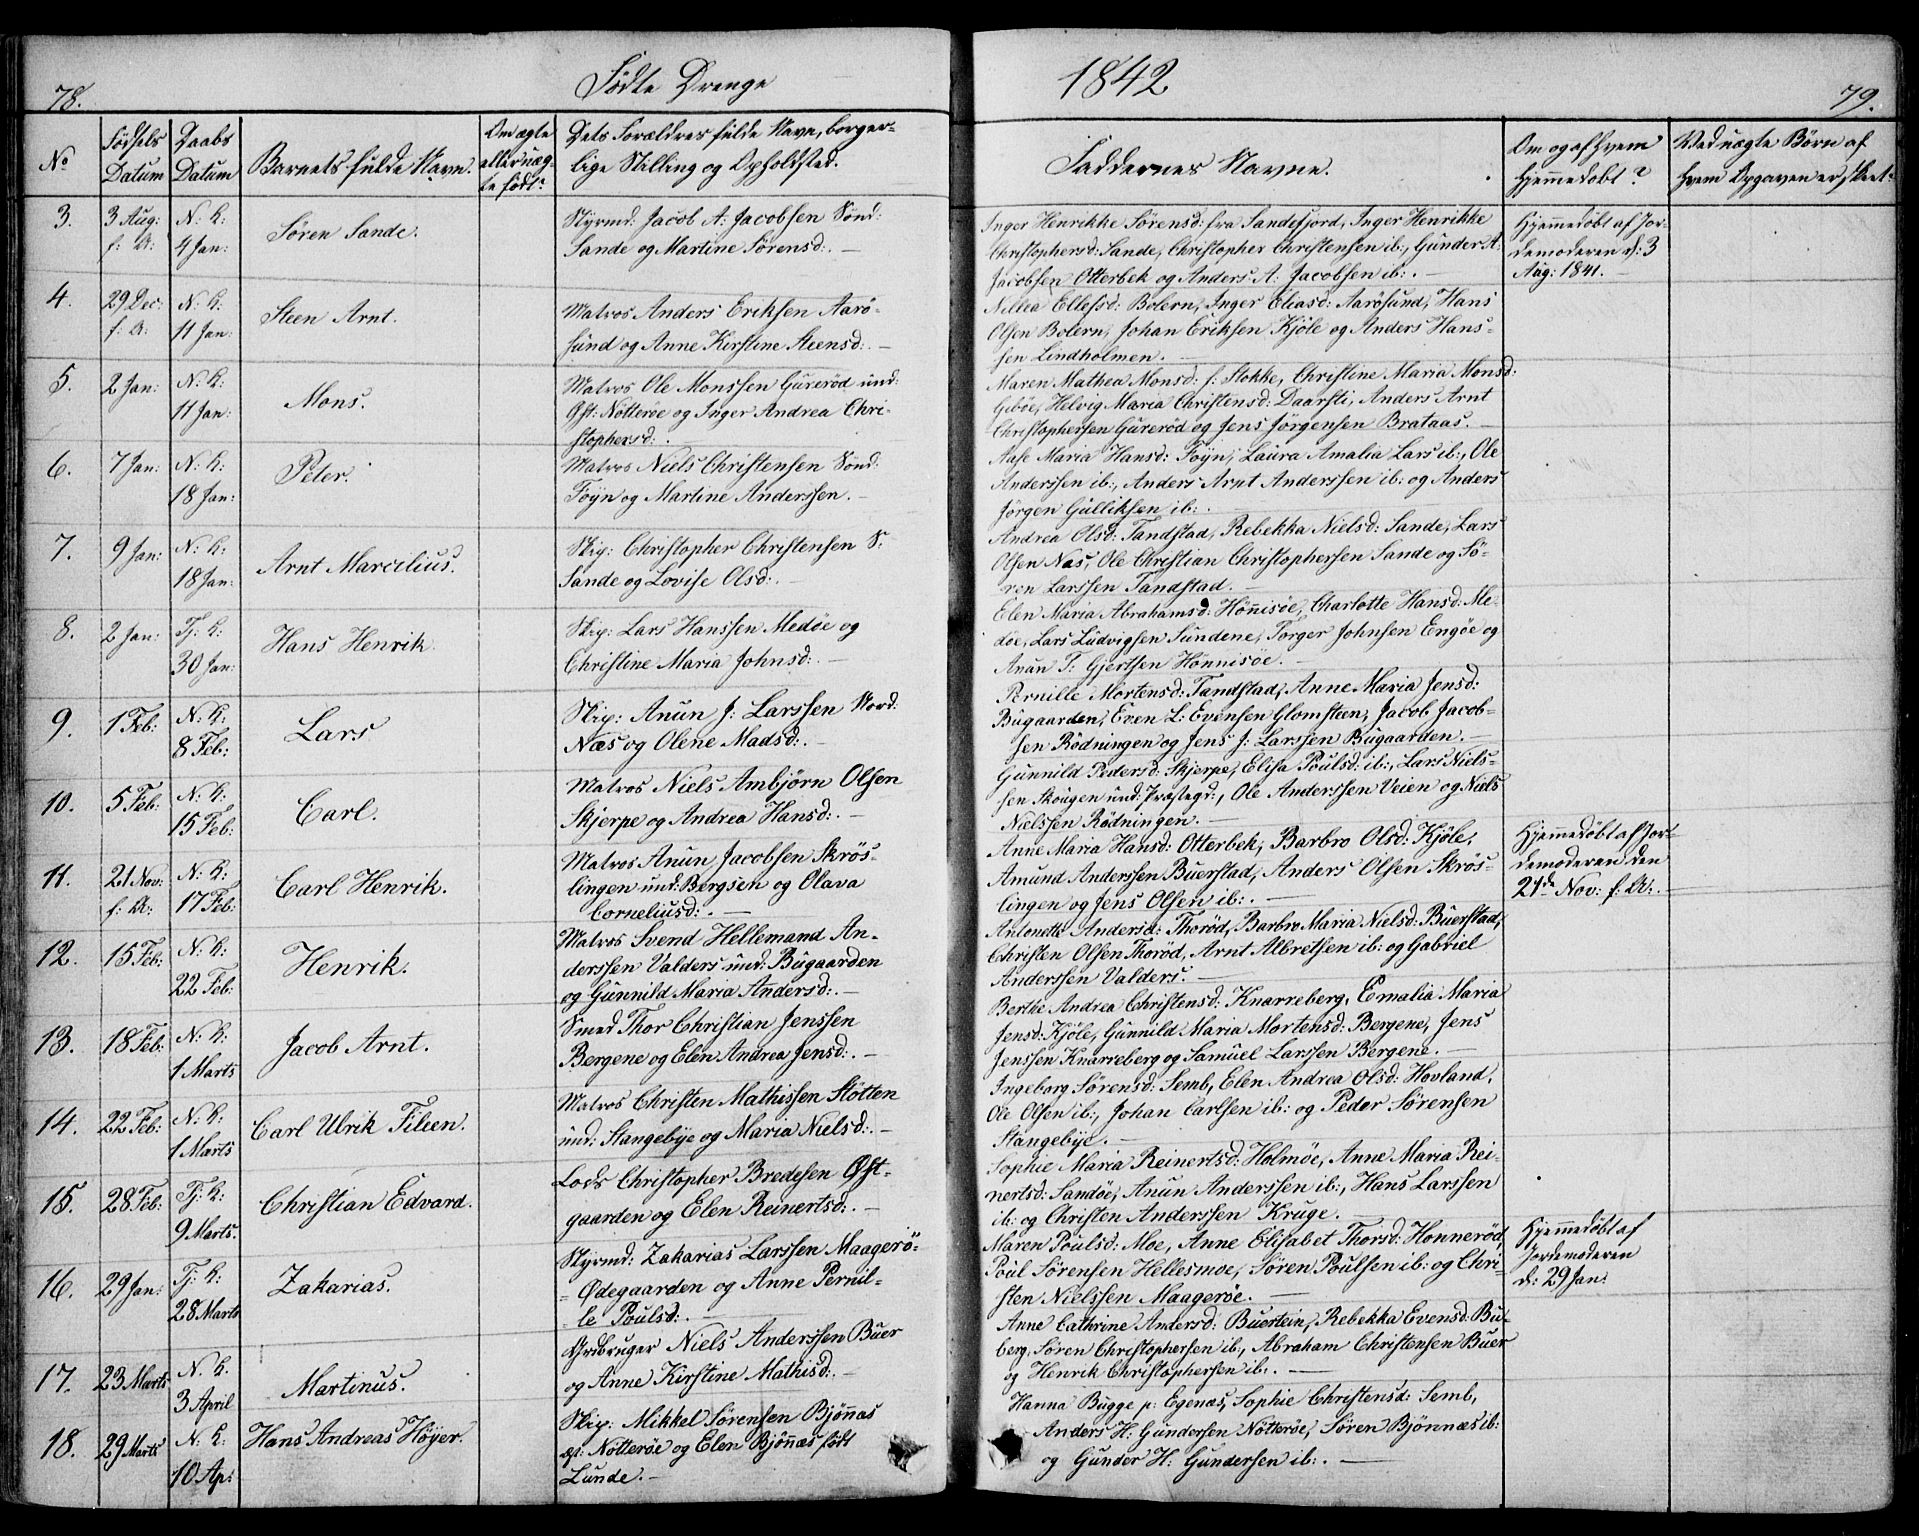 78.
Födte Drenge
No
Födsels Datum
Daabs Datum
Barnets fulde Navn.
Om ægte eller uæg-
te født.
Dets Forældres fulde Navn, borger-
lige Stilling og Opholdsted.
3.
3 Aug:
f: A:
N: K:
4 Jan:
Søren Sande.
Styrmd: Jacob A: Jacobsen Sönd:
Sande og Martine Sørensd: —
4.
29 Dec:
f: A:
N: K:
11 Jan:
Steen Arnt.
Matros Anders Eriksen Aarö-
sund og Anne Kirstine Steensd: —
5.
2 Jan:
N: K:
11 Jan:
Mons.
Matros Ole Monssen Gurerød und:
Gst: Nötterøe og Inger Andrea Chri-
stophersd:
6.
7 Jan:
N: K:
18 Jan:
Peter.
Matros Niels Christensen Sönd:
Föyn og Martine Anderssen. —
7.
9 Jan:
N: K:
18 Jan:
Arnt Marcilius.
Skip: Christopher Christensen S:
Sande og Lovise Olsd: —
8.
2 Jan:
Tj: K:
30 Jan:
Hans Henrik.
Skip: Lars Hanssen Medöe og
Christine Maria Johnsd: —
9.
1 Feb:
N: K:
8 Feb:
Lars
Skip: Anun J: Larssen Nord:
Næs og Olene Madsd: —
10.
5 Feb:
N: K:
15 Feb:
Carl.
Matros Niels Ambjörn Olsen
Skjerpe og Andrea Hansd: —
11.
21 Nov:
f: A:
N: K:
17 Feb:
Carl Henrik.
Matros Anun Jacobsen Skrös-
lingen und: Bergsen og Olava
Corneliusd: —
12.
15 Feb:
N: K:
22 Feb:
Henrik.
Matros Svend Hellemand An-
derssen Valders und: Bugaarden
og Gunnild Maria Andersd: —
13.
18 Feb:
N: K:
1 Marts
Jacob Arnt.
Smed Thor Christian Jenssen
Bergene og Elen Andrea Jensd: —
14.
22 Feb:
N: K:
1 Marts
Carl Ulrik Fileen.
Matros Christen Mathissen Stötten
und: Stangebye og Maria Nielsd: —
15.
28 Feb:
Tj: K:
9 Marts.
Christian Edvard.
Lods Christopher Bredesen Øst-
gaarden og Elen Reinertsd: —
16.
29 Jan:
Tj: K:
28 Marts
Zakarias.
Styrmd: Zakarias Larssen Maagerö-
Ødegaarden og Anne Pernil-
le Poulsd: —
17.
23 Marts
N: K:
3 April
Martinus.
Jordbruger Niels Anderssen Buer
og Anne Kirstine Mathisd: —
18.
29 Marts
N: K:
10 Ap:
Hans Andreas Höyer.
Skip: Mikkel Sørensen Bjönæs
Nötterøe og Elen Bjönæs født
Lunde. —
1842
79.
Faddernes Navne.
Om og af hvem
Hjemmedøbt?
Ved uægte Börn af
hvem Opgaven er skeet.
Inger Henrikke Sørensd: fra Sandefjord, Inger Henrikke
Christophersd: Sande, Christopher Christensen ib:, Gunder A:
Jacobsen Otterbek og Anders A: Jacobsen ib: —
Hjemmedøbt af Jor-
demoderen d: 3
Aug: 1841. —
Nillia Ellefsd: Bolern, Inger Eliasd: Aarösund, Hans
Olsen Bolern, Johan Eriksen Kjöle og Anders Hans-
sen Lindholmen. —
Maren Mathea Monsd: f: Stokke, Christine Maria Monsd:
Gibøe, Helvig Maria Christensd: Daarsti, Anders Arnt
Christophersen Gurerød og Jens Jörgensen Brataas. —
Aase Maria Hansd: Föyn, Laura Amalia Lars ib:, Ole
Anderssen ib:, Anders Arnt Anderssen ib: og Anders
Jörgen Gulliksen ib: —
Andrea Olsd: Tandstad, Rebekka Nielsd: Sande, Lars
Olsen Næs, Ole Christian Christophersen Sande og Sö-
ren Larssen Tandstad.
Elen Maria Abrahamsd: Hönnisöe, Charlotte Hansd: Me-
döe, Lars Ludvigsen Sundene, Torger Johnsen Engöe og
Anun T: Gjertsen Hönnisöe. —
Pernille Mortensd: Tandstad, Anne Maria Jensd:
Bugaarden, Even L: Evensen Glomsteen, Jacob Jacob-
sen Rödningen og Jens J: Larssen Bugaarden. —
Gunnild Pedersd: Skjerpe, Elisa Poulsd: ib:, Lars Niels-
sen Skougen und: Præstegd:, Ole Anderssen Veien og Niels
Nielssen Rödningen. —
Anne Maria Hansd: Otterbek, Barbro Olsd: Kjöle,
Amund Anderssen Buerstad, Anders Olsen Skrös-
lingen og Jens Olsen ib: —
Hjemmedøbt af Jor-
demoderen den
21de Nov: f: A: —
Antonette Andersd: Thoröd, Barbro Maria Nielsd: Buerstad,
Christen Olsen Thoröd, Arnt Albretsen ib: og Gabriel
Anderssen Valders. —
Berthe Andrea Christensd: Knarreberg, Emalia Maria
Jensd: Kjöle, Gunnild Maria Mortensd: Bergene, Jens
Jenssen Knarreberg og Samuel Larssen Bergene. —
Ingeborg Sørensd: Semb, Elen Andrea Olsd: Hovland,
Ole Olsen ib:, Johan Carlsen ib: og Peder Sørensen
Stangebye. —
Sophie Maria Reinertsd: Holmöe, Anne Maria Rei-
nertsd: Sandöe, Anun Anderssen ib:, Hans Larssen
ib: og Christen Anderssen Kruge. —
Maren Poulsd: Moe, Anne Elisabet Thorsd: Honneröd
Poul Sørensen Hellesmoe, Søren Poulsen ib: og Chri-
sten Nielssen Maageröe. —
Hjemmedøbt af
Jordemoderen
d: 29 Jan:
Anne Cathrine Andersd: Buertein, Rebekka Evensd: Bu-
berg, Søren Christophersen ib:, Abraham Christensen Buer
og Henrik Christophersen ib: —
Hanna Bugge p: Egenæs, Sophie Christensd: Semb,
Anders H: Gundersen Nötteröe, Søren Bjönnæs ib:
og Gunder H: Gundersen ib: —